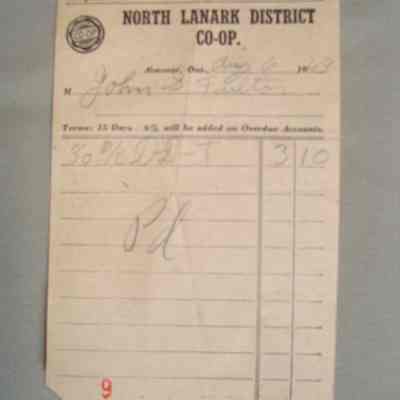 CO-OP
NORTH LANARK DISTRICT
CO-OP.
Almonte, Ont. Aug 6 19
M John Fulton
Terms: 15 Days. % will be added on Overdue Accounts.
3 10
Pd
9